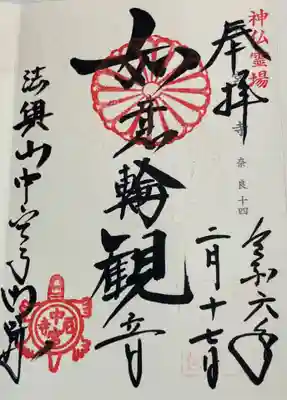 神仏霊場
奉拝
奈良十四
令和六年
二月十七日
如意輪観音
法興山中宮寺門跡